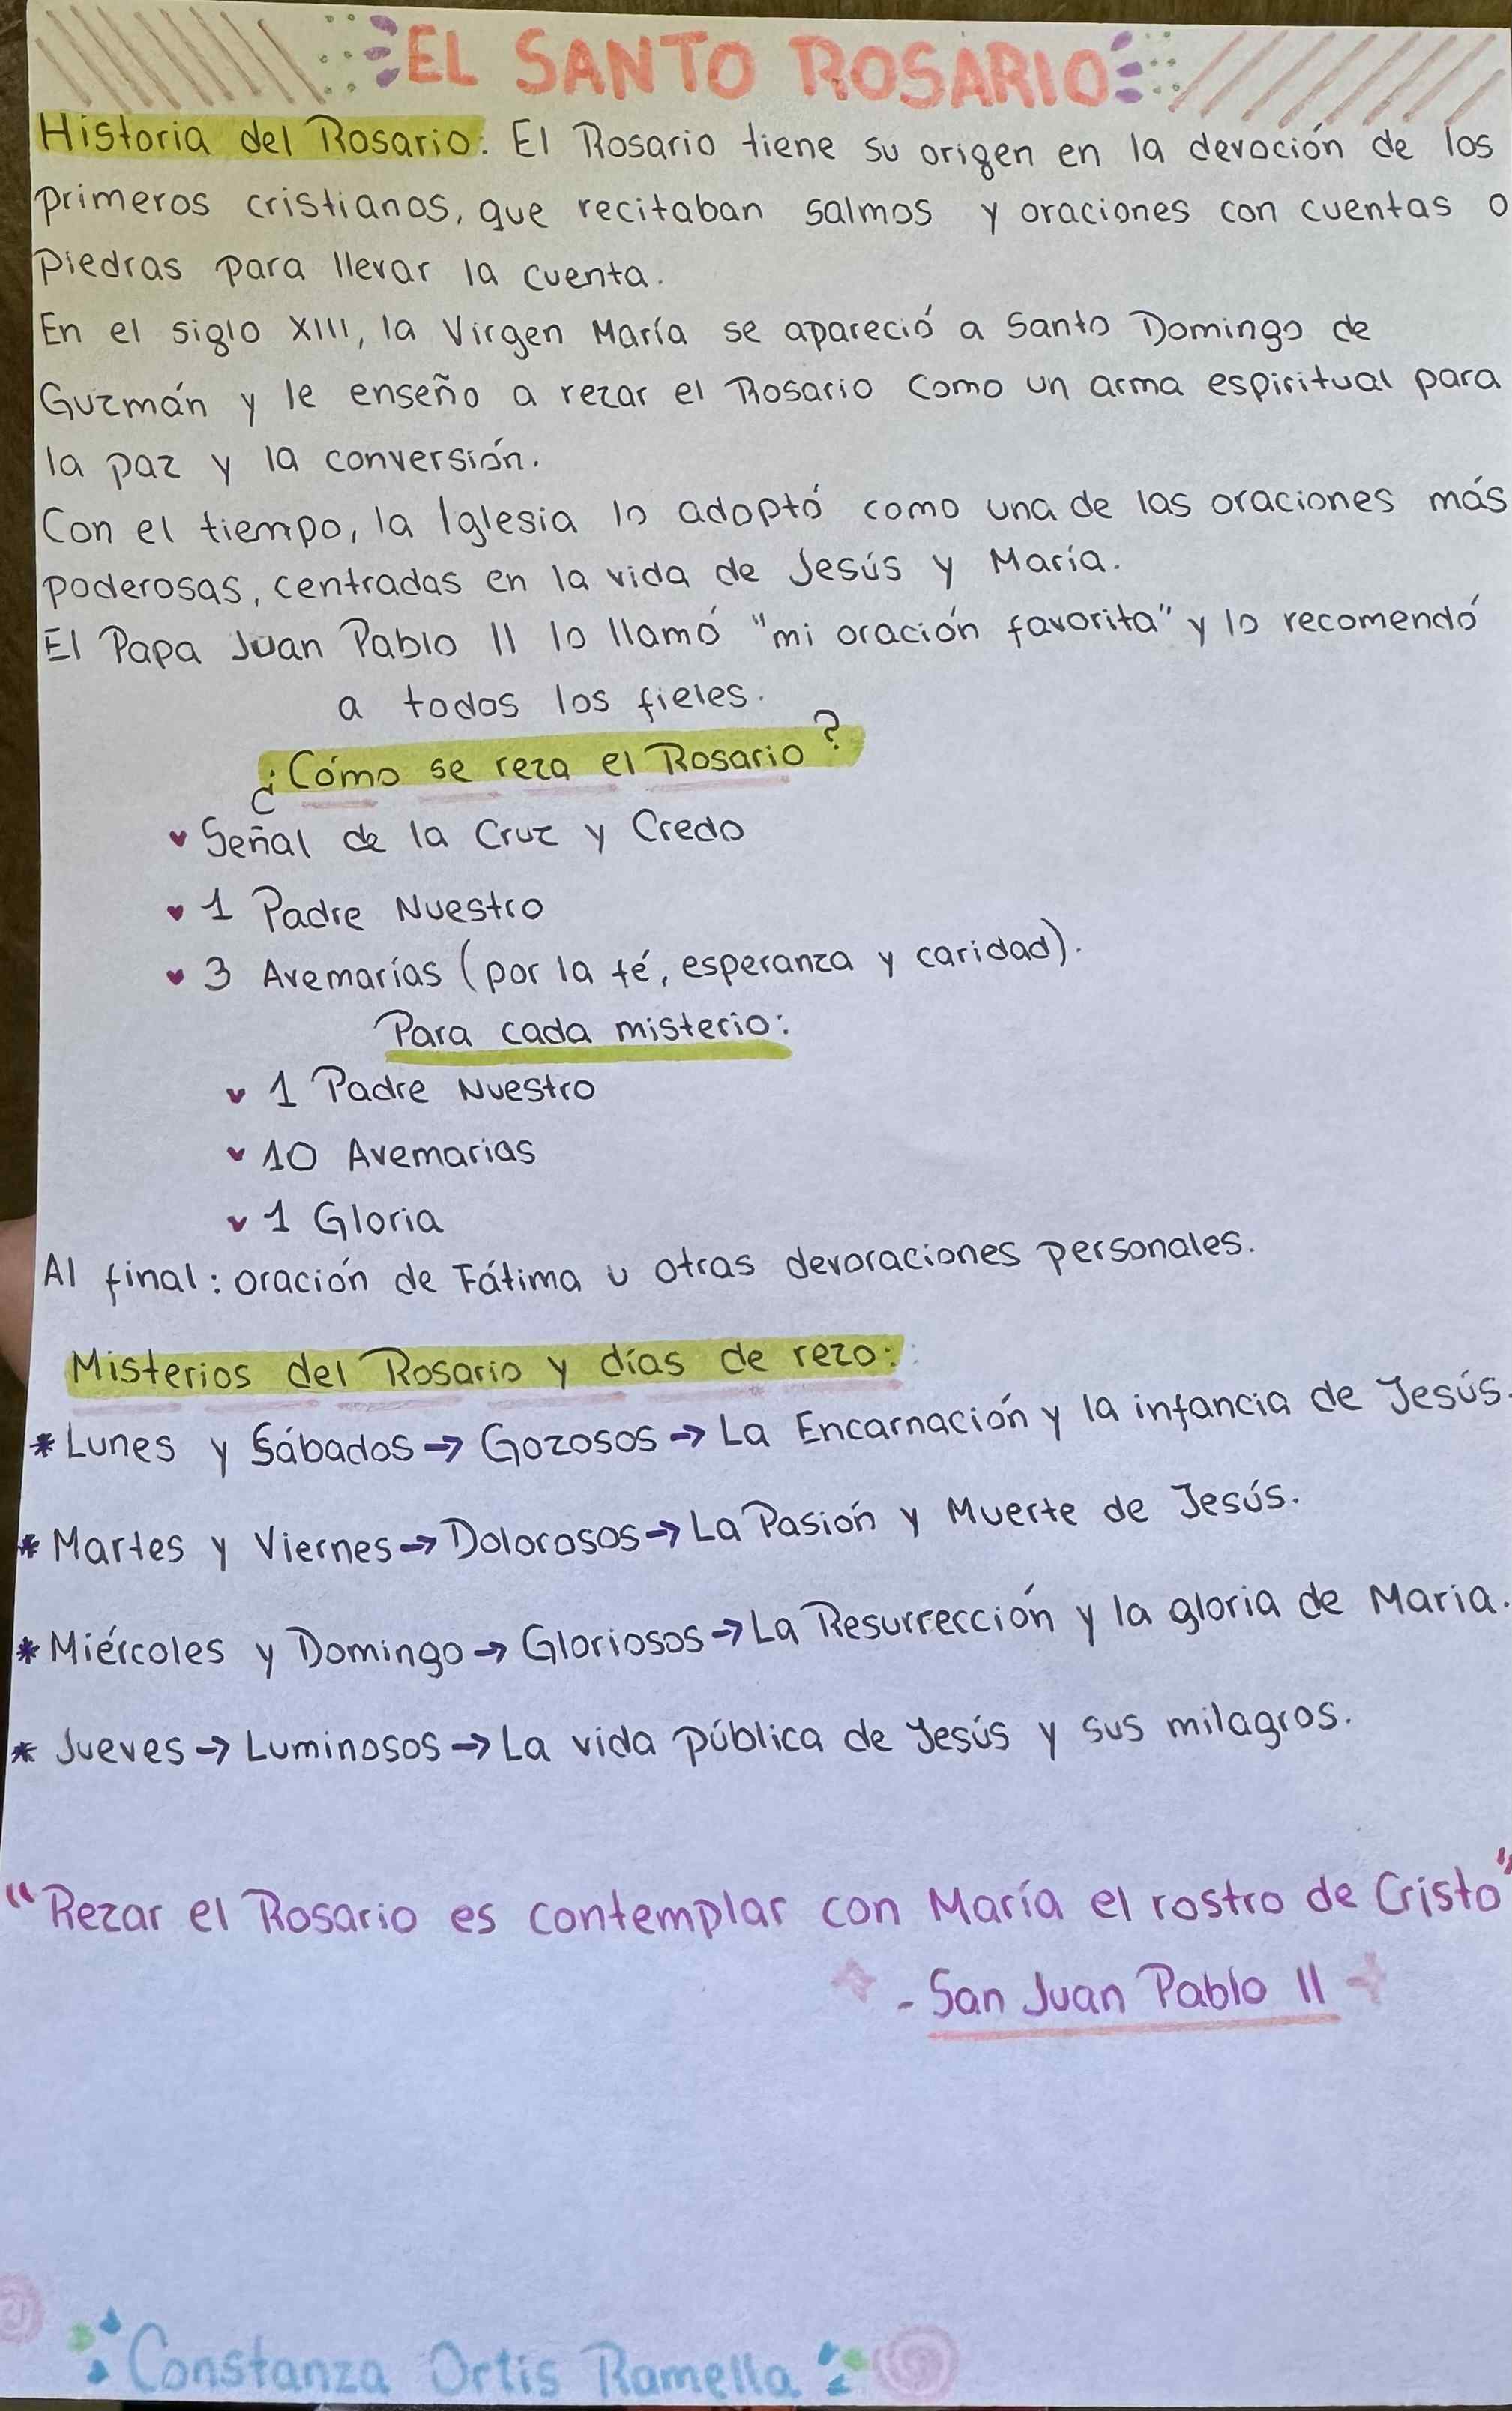 EL SANTO ROSARIO
Historia del Rosario: El Rosario tiene su origen en la devoción de los
primeros cristianos, que recitaban salmos y oraciones con cuentas o
piedras para llevar la cuenta.
En el siglo XIII, la Virgen María se apareció a Santo Domingo de
Guzmán y le enseño a rezar el Rosario como un arma espiritual para
la paz y la conversión.
Con el tiempo, la Iglesia lo adoptó como una de las oraciones más
poderosas, centradas en la vida de Jesús y María.
El Papa Juan Pablo II lo llamó "mi oración favorita" y lo recomendó
a todos los fieles.
¿Cómo se reza el Rosario?
♥ Señal de la Cruz y Credo
♥ 1 Padre Nuestro
♥ 3 Avemarías (por la fé, esperanza y caridad).
Para cada misterio:
♥ 1 Padre Nuestro
♥ 10 Avemarias
♥ 1 Gloria
Al final: oración de Fátima u otras devoraciones personales.
Misterios del Rosario y días de rezo:
* Lunes y Sábados → Gozosos → La Encarnación y la infancia de Jesús.
* Martes y Viernes → Dolorosos → La Pasión y Muerte de Jesús.
* Miércoles y Domingo → Gloriosos → La Resurrección y la gloria de Maria.
* Jueves → Luminosos → La vida pública de Jesús y sus milagros.
"Rezar el Rosario es contemplar con María el rostro de Cristo"
- San Juan Pablo II
Constanza Ortis Ramella